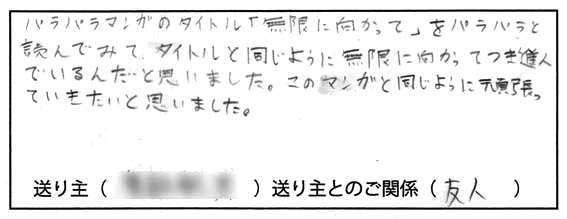 パラパラマンガのタイトル「無限に向かって」をパラパラと
読んでみて、タイトルと同じように無限に向かってつき進ん
でいるんだと思いました。このマンガと同じように頑張っ
ていきたいと思いました。
送り主（　　　　　）送り主とのご関係（友人　）